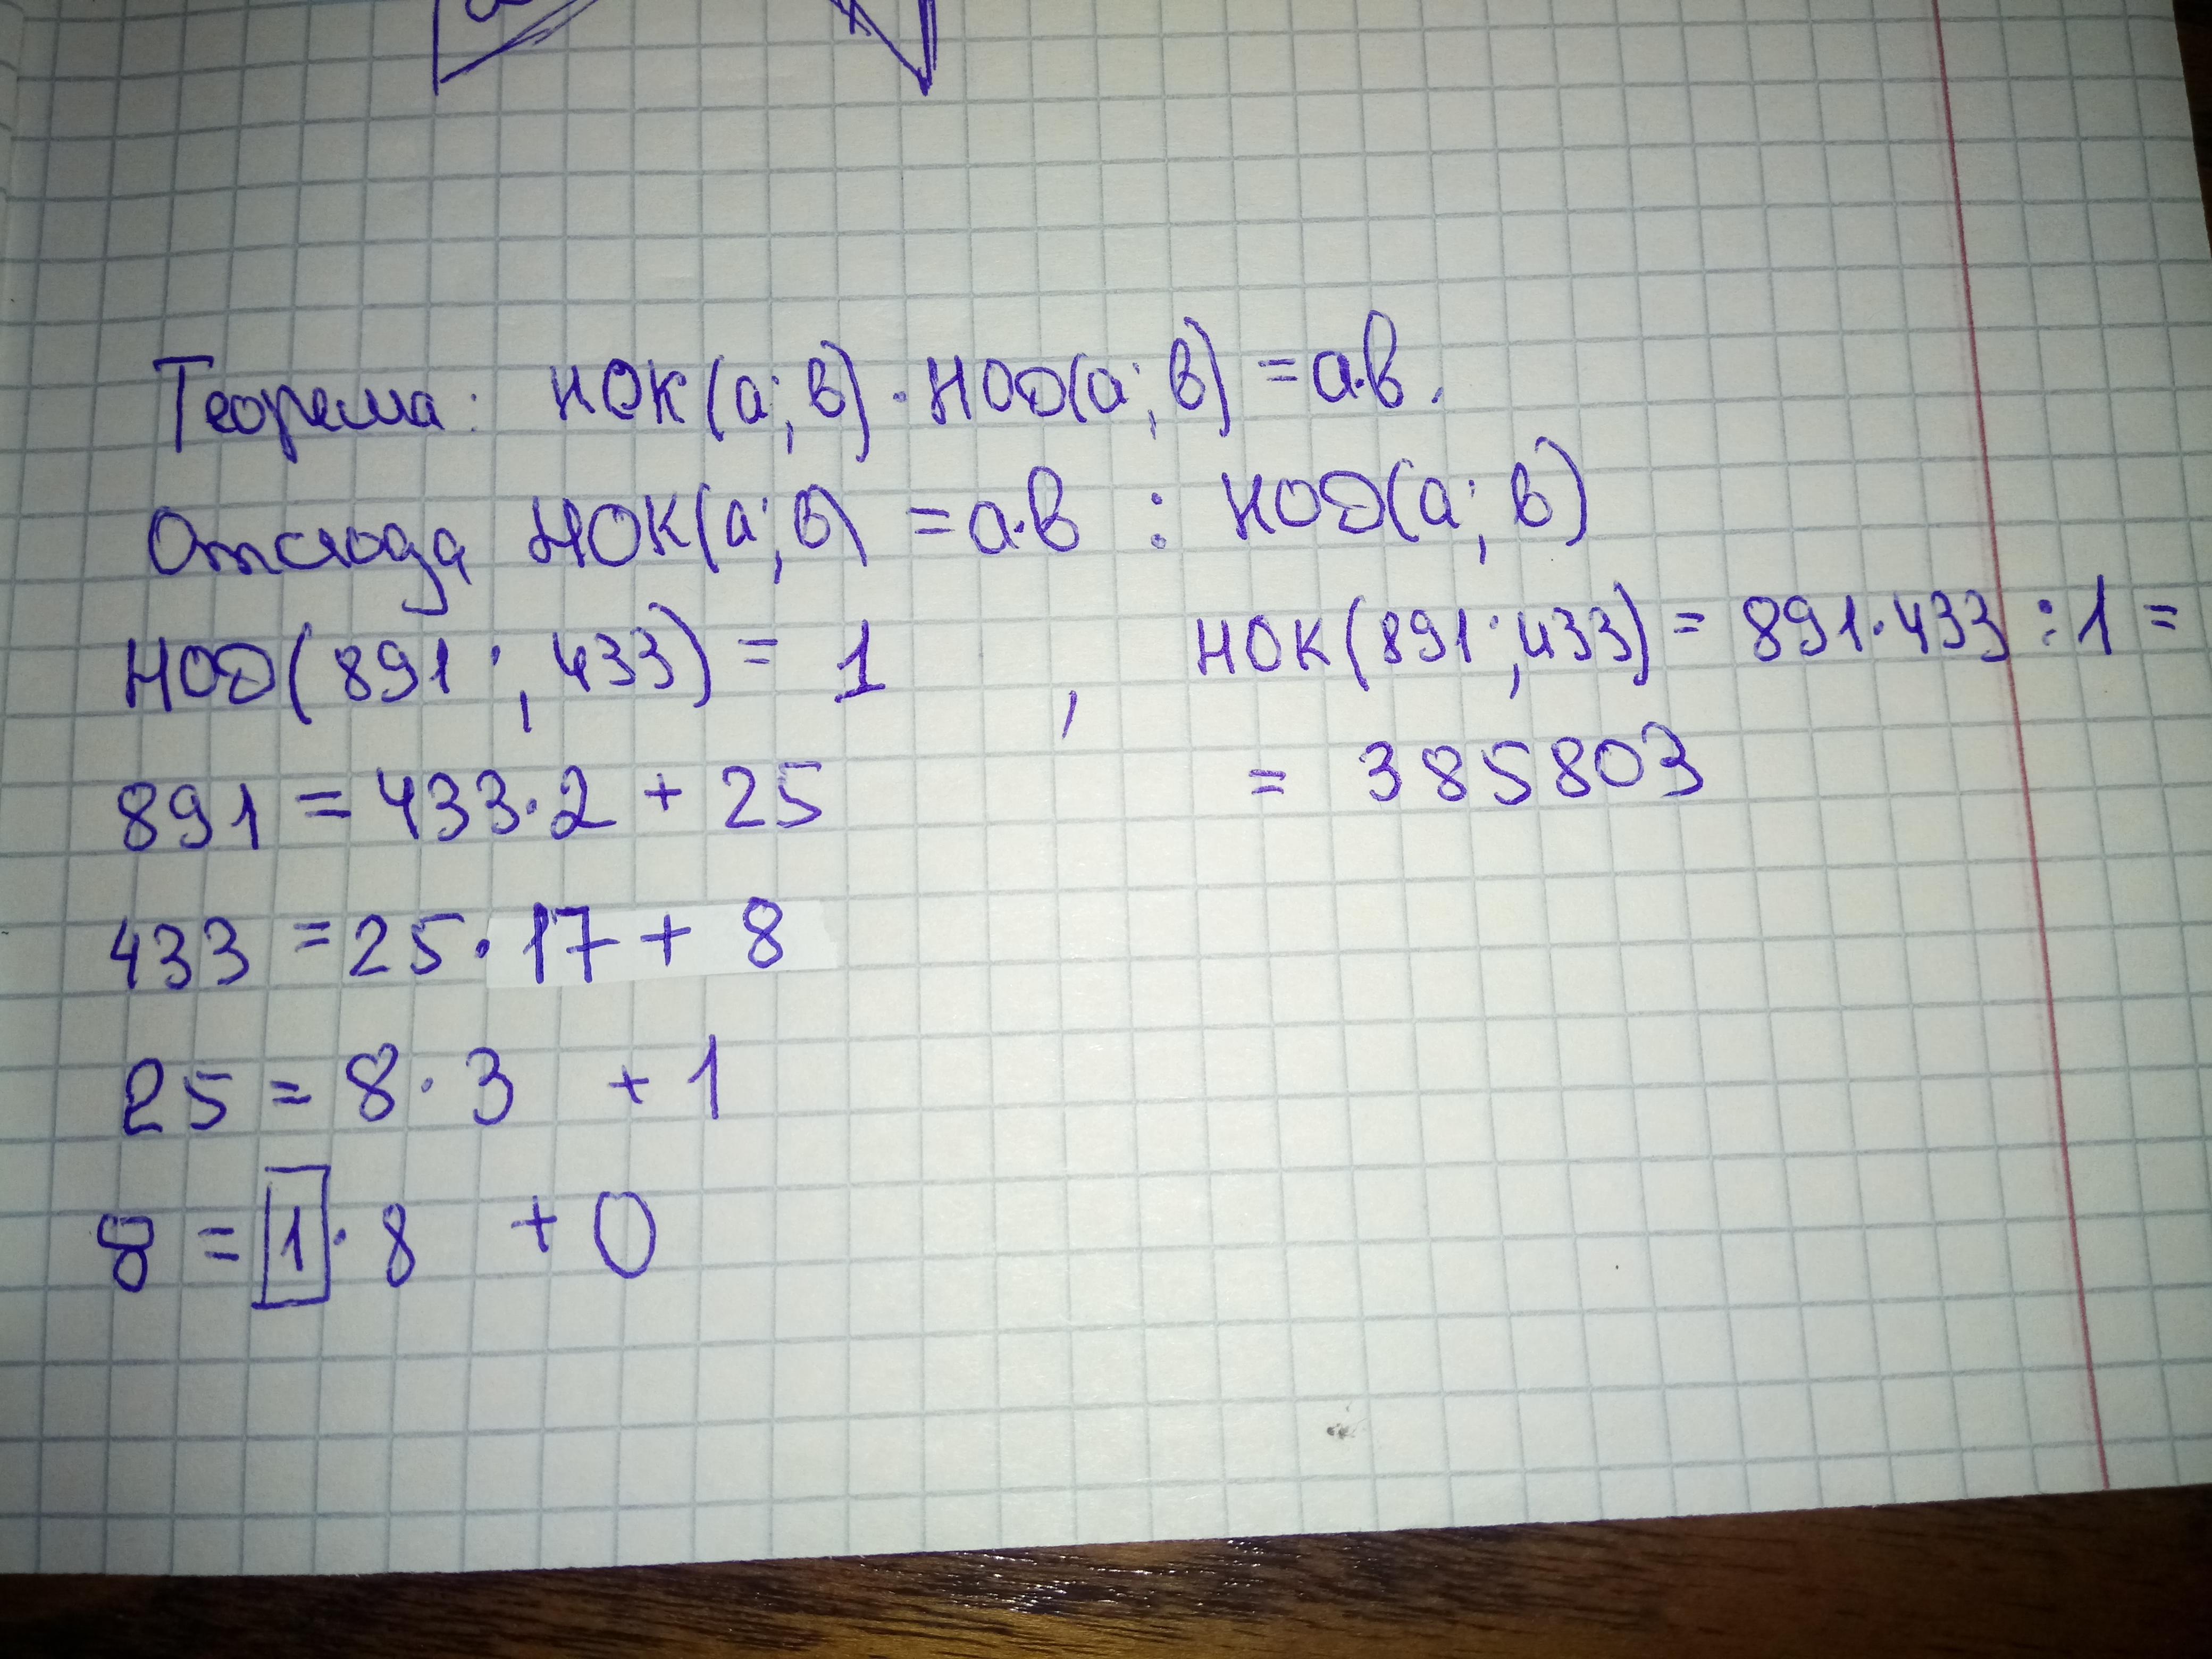 Теорема: НОК(а; в) · НОД(а; в) = а·в.
Отсюда НОК(а; в) = а·в : НОД(а; в)
НОД(891; 433) = 1 , НОК(891; 433) = 891·433 : 1 =
891 = 433·2 + 25 = 385803
433 = 25·17 + 8
25 = 8·3 + 1
8 = 1·8 + 0